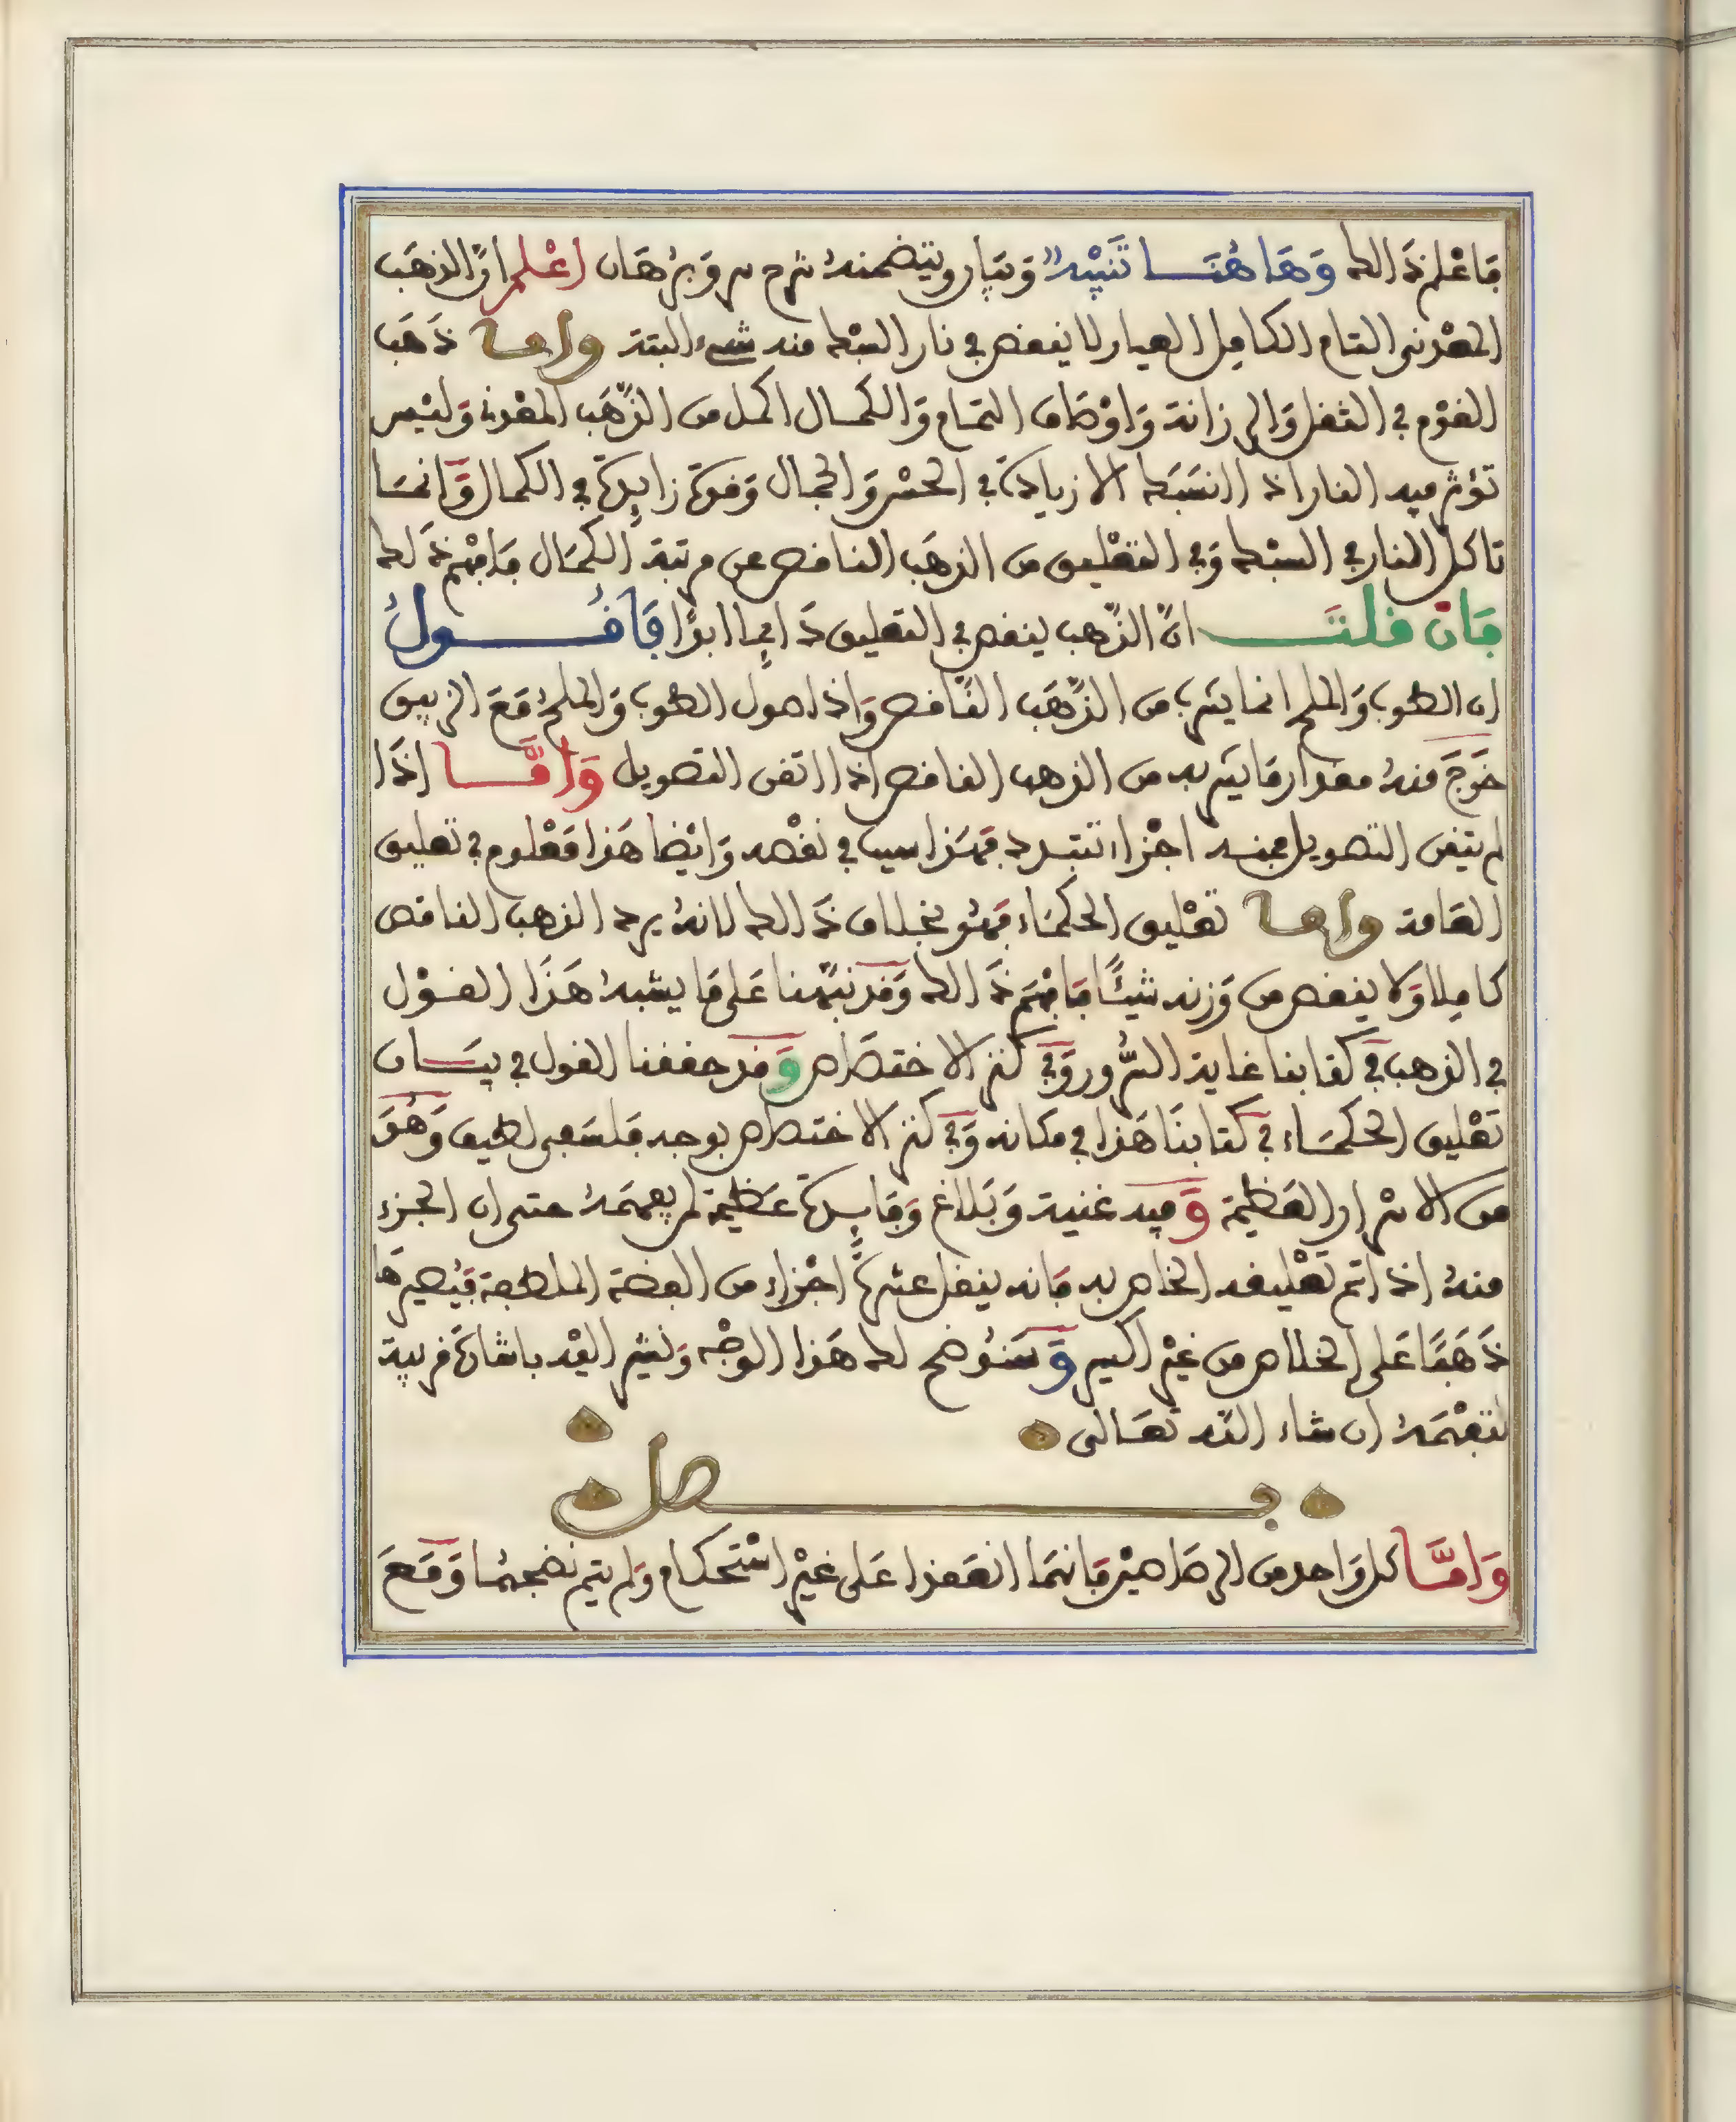 فاعلم ذالك وَهَاهُنَا تَنْبِيْهٌ وَبَيَان ويتضمنهُ شرح سر وَبرْهَان اعْلم انّ الذهَب
المعْدني التام الكامِل العيار لا ينقص في نار السبْك منه شيء البتة واما ذهَب
القوْم في الثقل وَالرزانة وَاوْصَاف التمام وَالكمال اكمل من الذّهَب المعْدني وَليْس
تؤثر فيه النار اذا انسَبَك الا زيادة في الحسْن وَالجمال وَقوة زايدة في الكمال وَانمَا
تاكل النار في السبْك وَفي التعْليق من الذهَب الناقص عن مرتبة الكمَال فافهْم ذَلك
فَان قلتَ انّ الذّهب ينقص في التعليق دَايِما ابدًا فَاقُولُ
ان الطوب وَالملح انما يشرب من الذّهَب النّاقص وَاذا صول الطوب وَالملحُ مَعَ الزيبق
خَرجَ منهُ مقدار مَا يشربه من الذهب الناقص اذا اتقن التصويل وَامَّا اذَا
لم يتقن التصويل فمنه اجْزاء تتبدد فهَذا سبب في نقْصه وَايْضا هَذا مَعْلوم في تعليق
العَامة واما تعْليق الحكمَاء فهُو بخلاف ذَالك لانهُ يرد الذهب الناقص
كامِلا وَلا ينقص من وَزنه شيئًا فافهَم ذَالك وَقد نبّهنا عَلى مَا يشبهُ هَذَا القوْل
في الذهب في كتابنا غاية السُّرور وَفي كنز الاختصَاص وَقد حققنا القول في بيَان
تعْليق الحكمَاء في كتابنَا هَذا في مكانه وَفي كنز الاختصاص بوجه فلسَفى لطيف وَهُوَ
من الاسْرار العَظِيمة وَفيه غنية وَبَلاغ وَفَايِدة عَظيمة لمن يفهمَهُ حتى ان الجزء
منهُ اذا تم تعْليقه الخاص به فَانه ينقل عشرةً اجْزاء من الفضة الملطفة فيُصيرهَا
ذَهَبًا عَلى الخلاص من غيْر اكسير وَسَنُوضح لك هَذا الوجْه وَنشير اليْه باشارة قريبة
لتفْهَمهُ ان شاء الله تعَالى
فصل
وَامَّا كل وَاحد من الرصَاصيْن فَانهمَا انعَقدا عَلى غيْر اسْتحكام وَلم يتم نضجهُما وَمَعَ